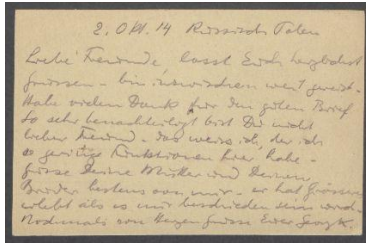 2. Okt. 14 Russisch Polen
Liebe Freunde lasst Euch herzlichst
grüssen - bin inzwischen weit gereist -
Habe vielen Dank für den guten Brief
So sehr benachteiligt bist Du nicht
lieber Freund - das weiss ich, der ich
so geistige Funktionen hier habe -
grüsse Deine Mutter und Deinen
Bruder bestens von mir - er hat Grösseres
erlebt als es mir beschieden sein wird -
Nochmals von Herzen Grüsse Euer